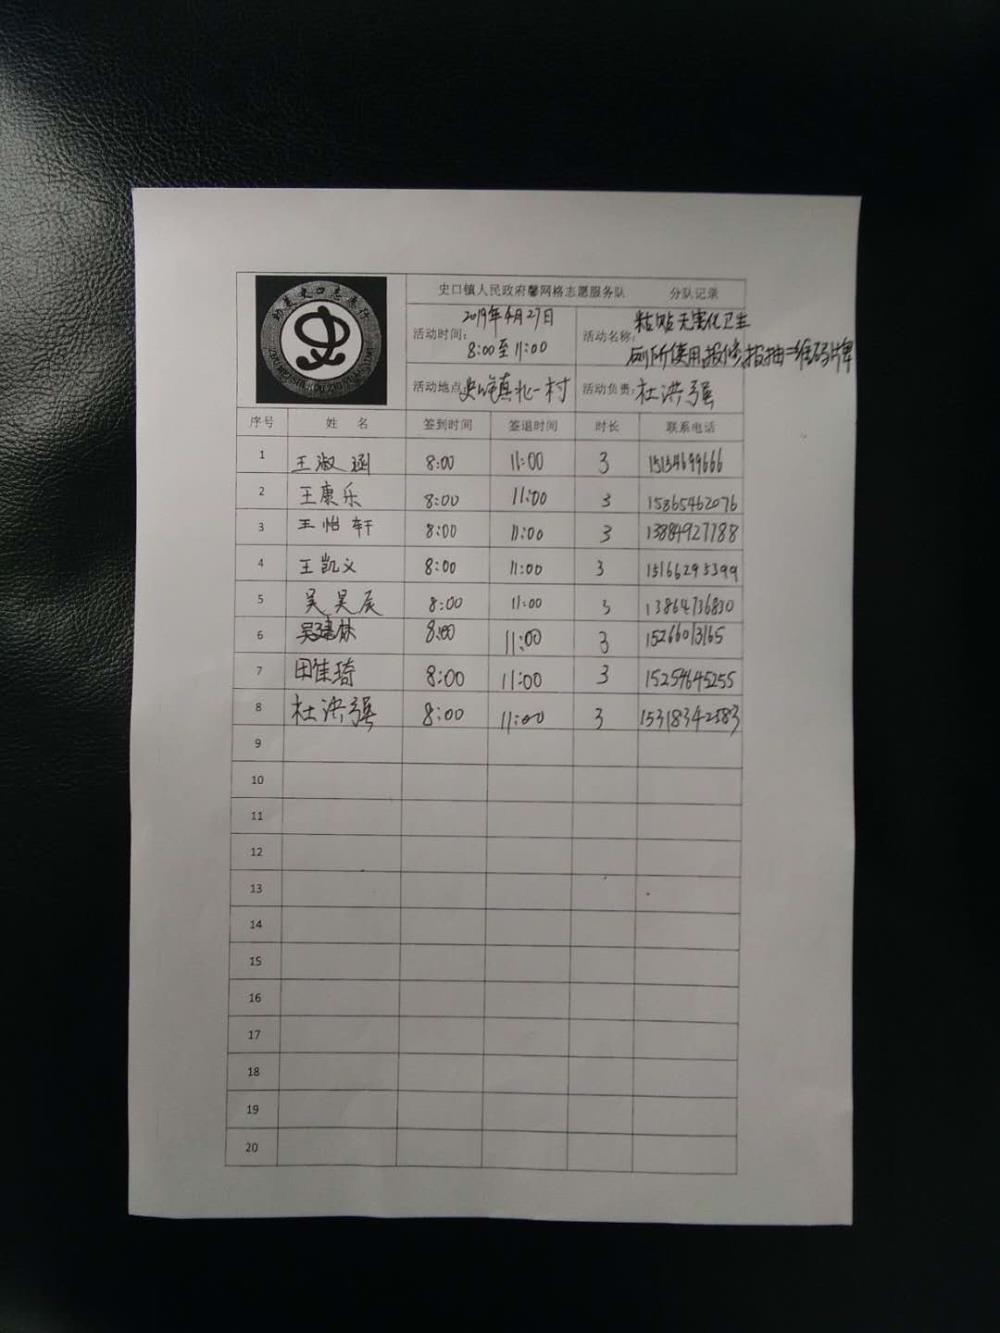 史口镇人民政府馨网格志愿服务队 分队记录
活动时间: 2019年4月27日
8:00至11:00
活动名称: 粘贴无害化卫生
厕所使用报修报抽二维码牌
活动地点 史口镇北一村
活动负责: 杜洪强
序号 姓 名 签到时间 签退时间 时长 联系电话
1 王淑涵 8:00 11:00 3 15154699666
2 王康乐 8:00 11:00 3 15865462076
3 王怡轩 8:00 11:00 3 13884927788
4 王凯文 8:00 11:00 3 15166295399
5 吴昊辰 8:00 11:00 3 13864736830
6 8:00 11:00 3 15266013165
7 田佳琦 8:00 11:00 3 15254645255
8 杜洪强 8:00 11:00 3 15318342583
9
10
11
12
13
14
15
16
17
18
19
20